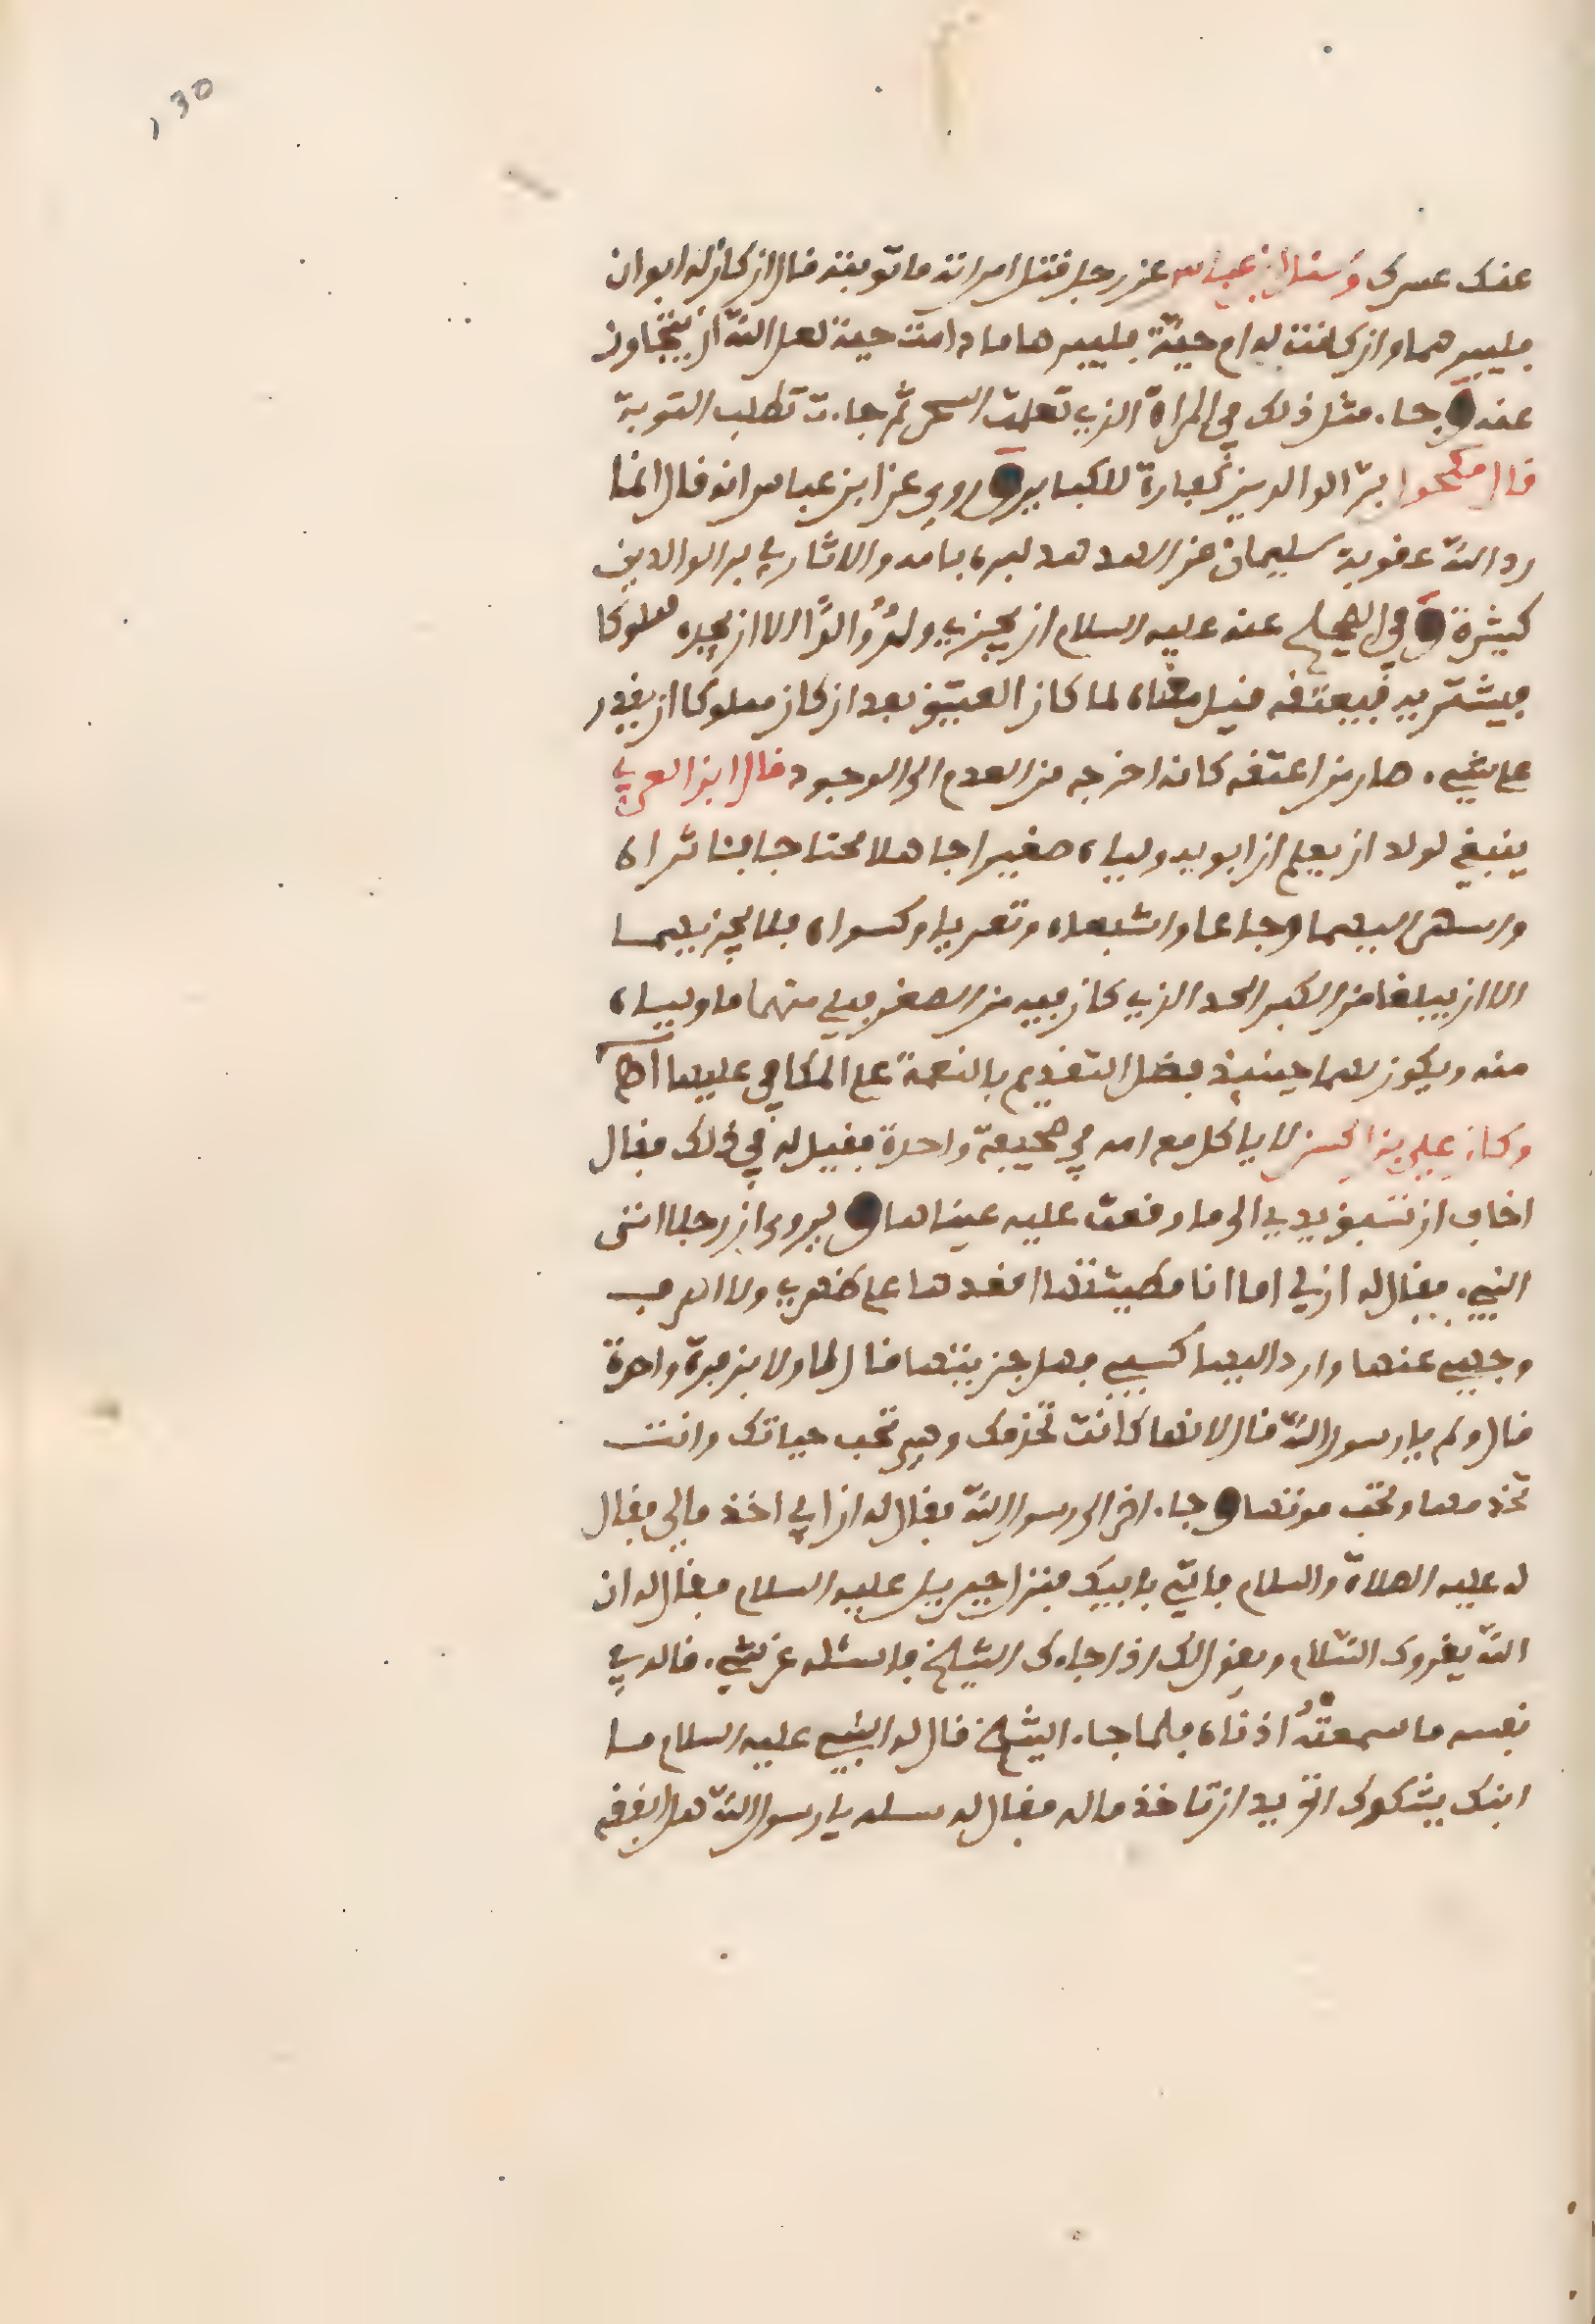 130
عنك عسرك وسئل ابن عباس عن رجل قتل امراته ما توبته قال ان كان له ابوان
فليبرهما وان كانت له ام حية فليبرها ما دامت حية لعل الله ان يتجاوز
عنه وجاء مثل ذلك في المراة الذي تعلمت السحر ثم جاءت تطلب التوبة
قال مكحول بر الوالدين كفارة للكباير وروي عن ابن عباس انه قال انما
رد الله عقوبة سليمان عن الهدهد لبره بامه والاثار في بر الوالدين
كثيرة وفي الصحيح عنه عليه السلام لن يجزي ولد والدا الا ان يجده مملوكا
فيشتريه فيعتقه قيل معناه لما كان العتيق بعد ان كان مملوكا لن يقدر
على شيء صار من اعتقه كانه اخرجه من العدم الى الوجود قال ابن العربي
ينبغي لولد ان يعلم ان ابويه ولياه صغيرا جاهلا محتاجا فاثراه
واسهرا ليلهما وجاعا واشبعاه وتعريا وكسواه فلا يجزيهما
الا ان يبلغا من الكبر الحد الذي كان فيه من الصغر فيلي منهما ما ولياه
منه ويكون لهما حينئذ فضل التقديم بالنعمة على المكافي عليها اهـ
وكان علي بن الحسن لا ياكل مع امه في صحيفة واحدة فقيل له في ذلك فقال
اخاف ان تسبق يدي الى ما وقعت عليه عيناها ويروى ان رجلا اتى
النبي فقال له ان لي اما انا مطيتها اقعدها على ظهري ولا اصرف
وجهي عنها وارد اليها كسبي فهل جزيتها قال لا ولا بزفرة واحدة
قال ولم يا رسول الله قال لانها كانت تخدمك وهي تحب حياتك وانت
تخدمها وتحب موتها وجاء اخر الى رسول الله فقال له ان ابي اخذ مالي فقال
له عليه الصلاة والسلام فاتي بابيك فنزل جبريل عليه السلام فقال له ان
الله يقروك السلام ويقول لك اذا جاءك الشيخ فاسئله عن شيء قاله في
نفسه ما سمعته اذناه فلما جاء الشيخ قال له النبي عليه السلام ما
ابنك يشكوك اتريد ان تاخذ ماله فقال له سله يا رسول الله هل انفقه